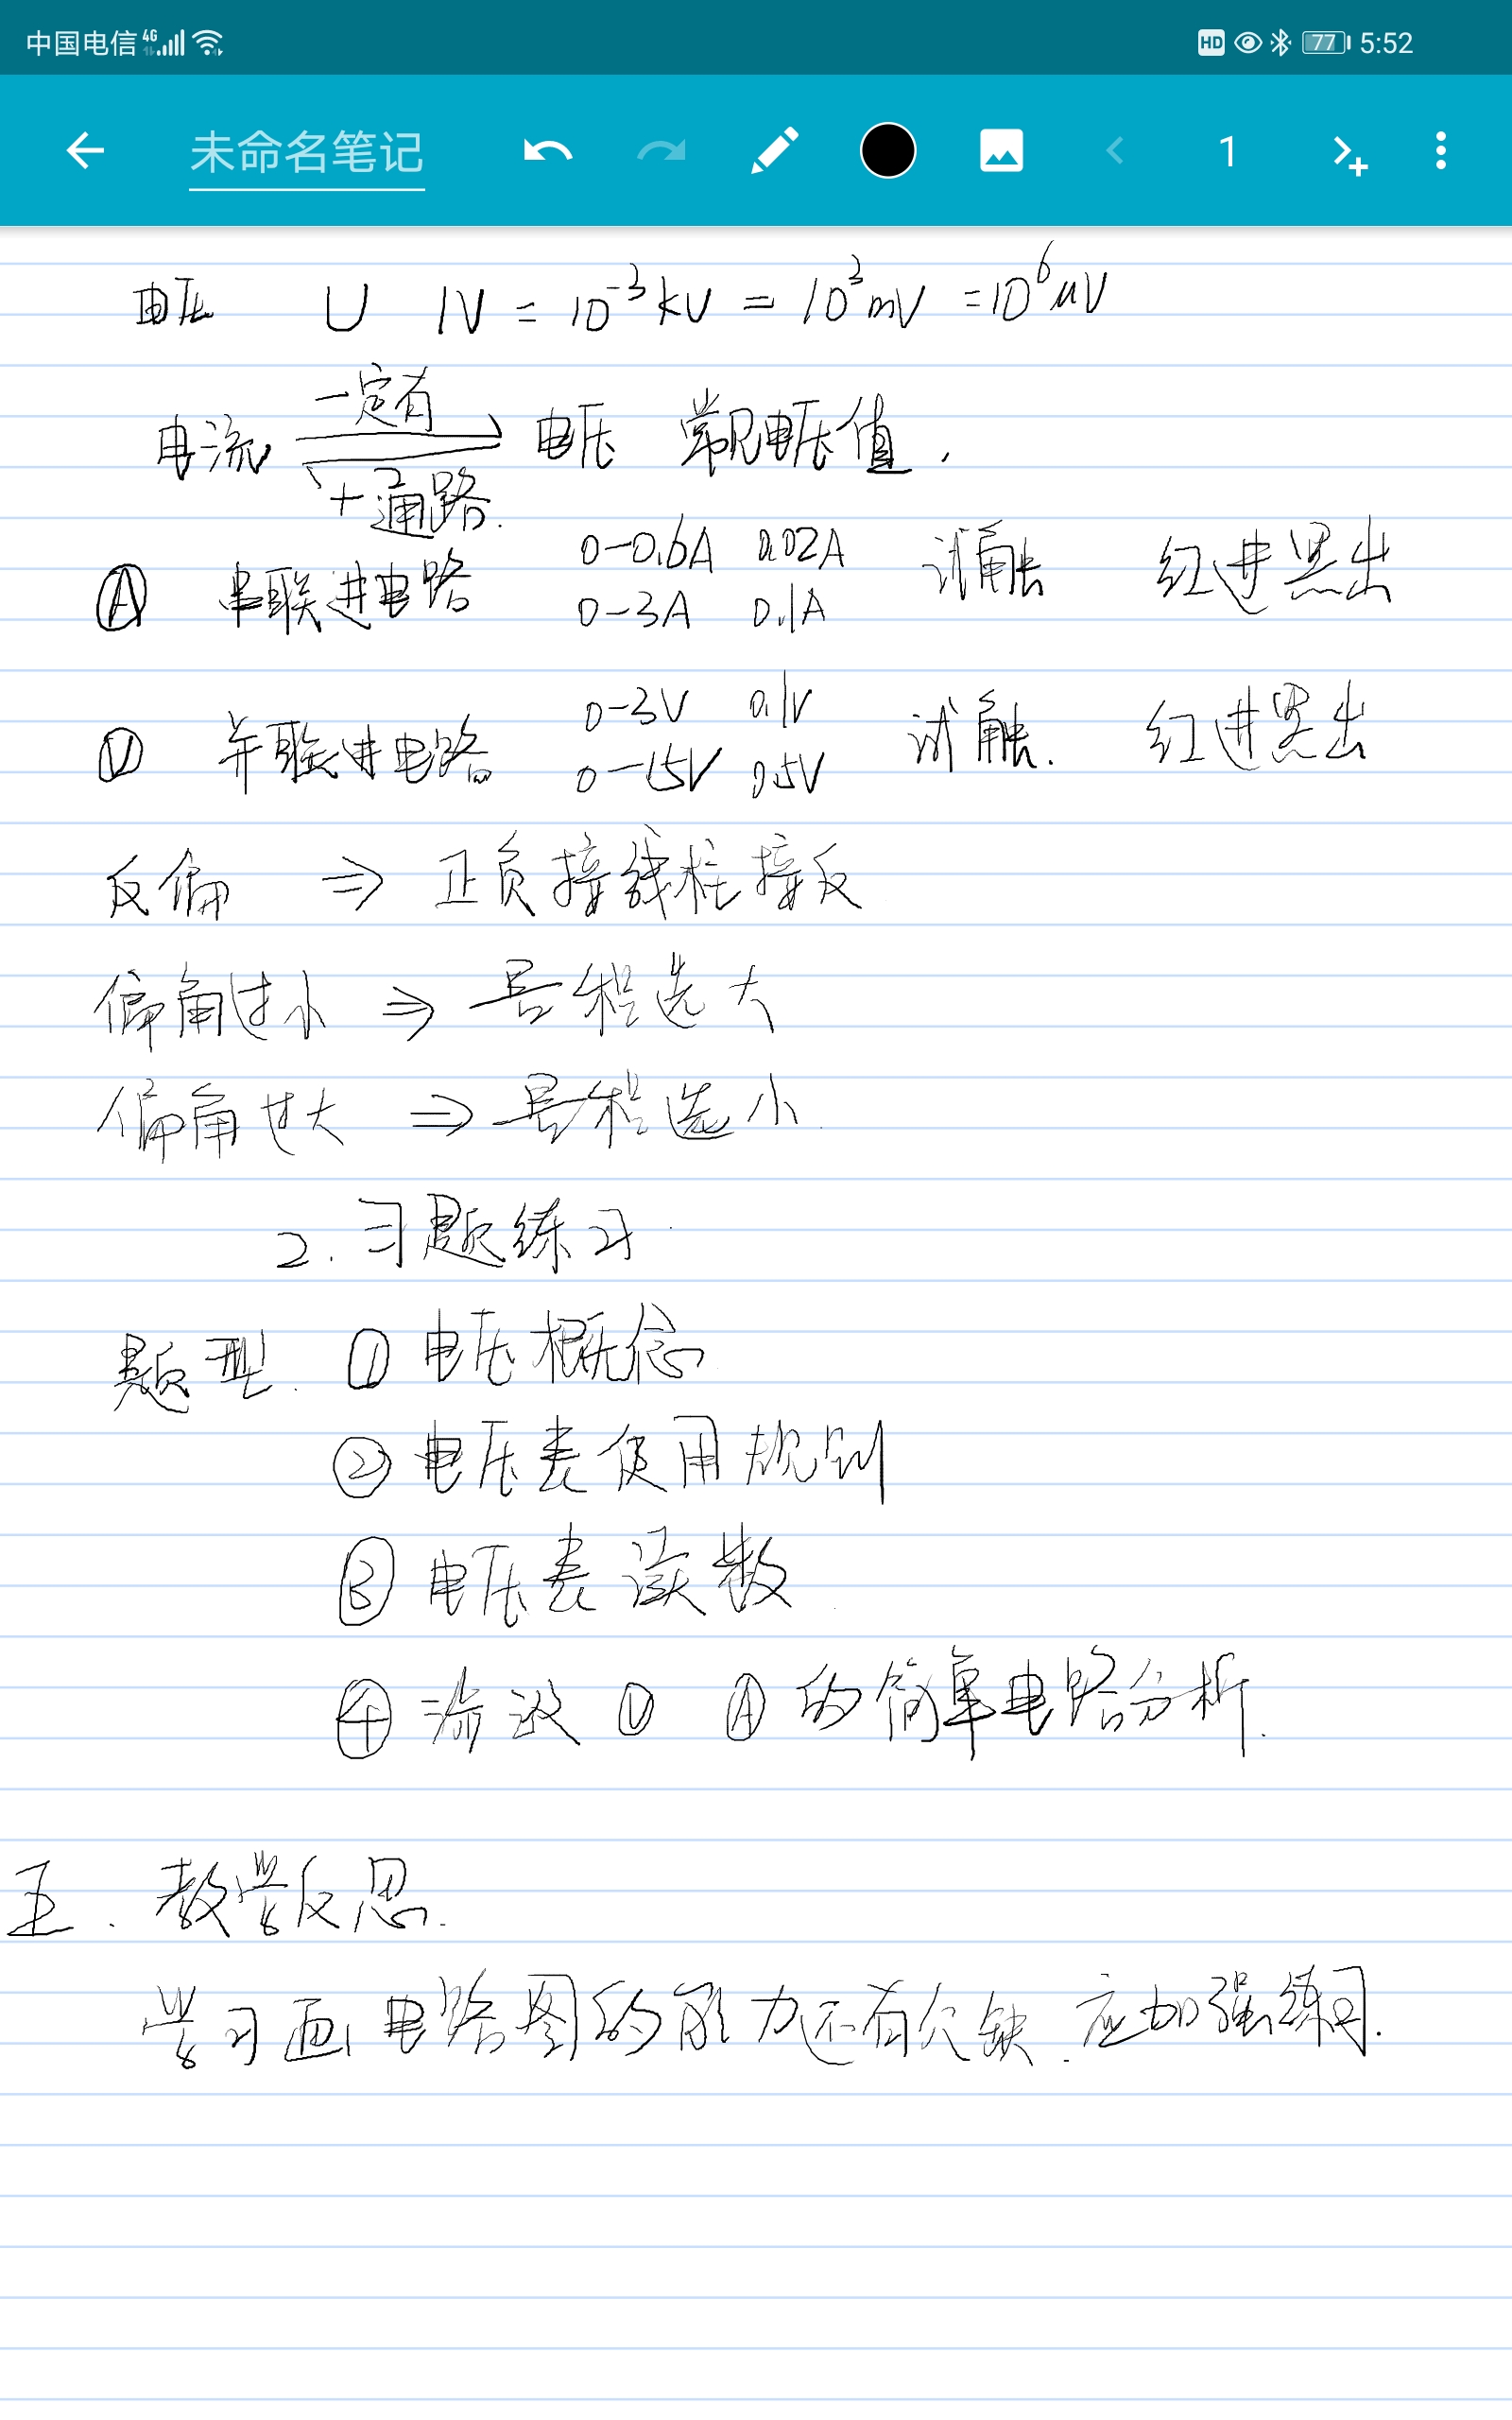 中国电信 4G HD 77 5:52
未命名笔记 1
电压 U 1V = 10⁻³kV = 10³mV = 10⁶μV
一定有
电流 电压 常见电压值.
+通路.
0-0.6A 0.02A
Ⓐ 串联进电路 试触 红进黑出
0-3A 0.1A
0-3V 0.1V
Ⓥ 并联进电路 试触. 红进黑出
0-15V 0.5V
反偏 ⇒ 正负接线柱接反
偏角过小 ⇒ 量程选大
偏角过大 ⇒ 量程选小.
2. 习题练习
题型. ① 电压概念
② 电压表使用规则
③ 电压表读数
④ 涉及 Ⓥ Ⓐ 的简单电路分析.
五. 教学反思.
学习画电路图的能力还有欠缺. 应加强练习.